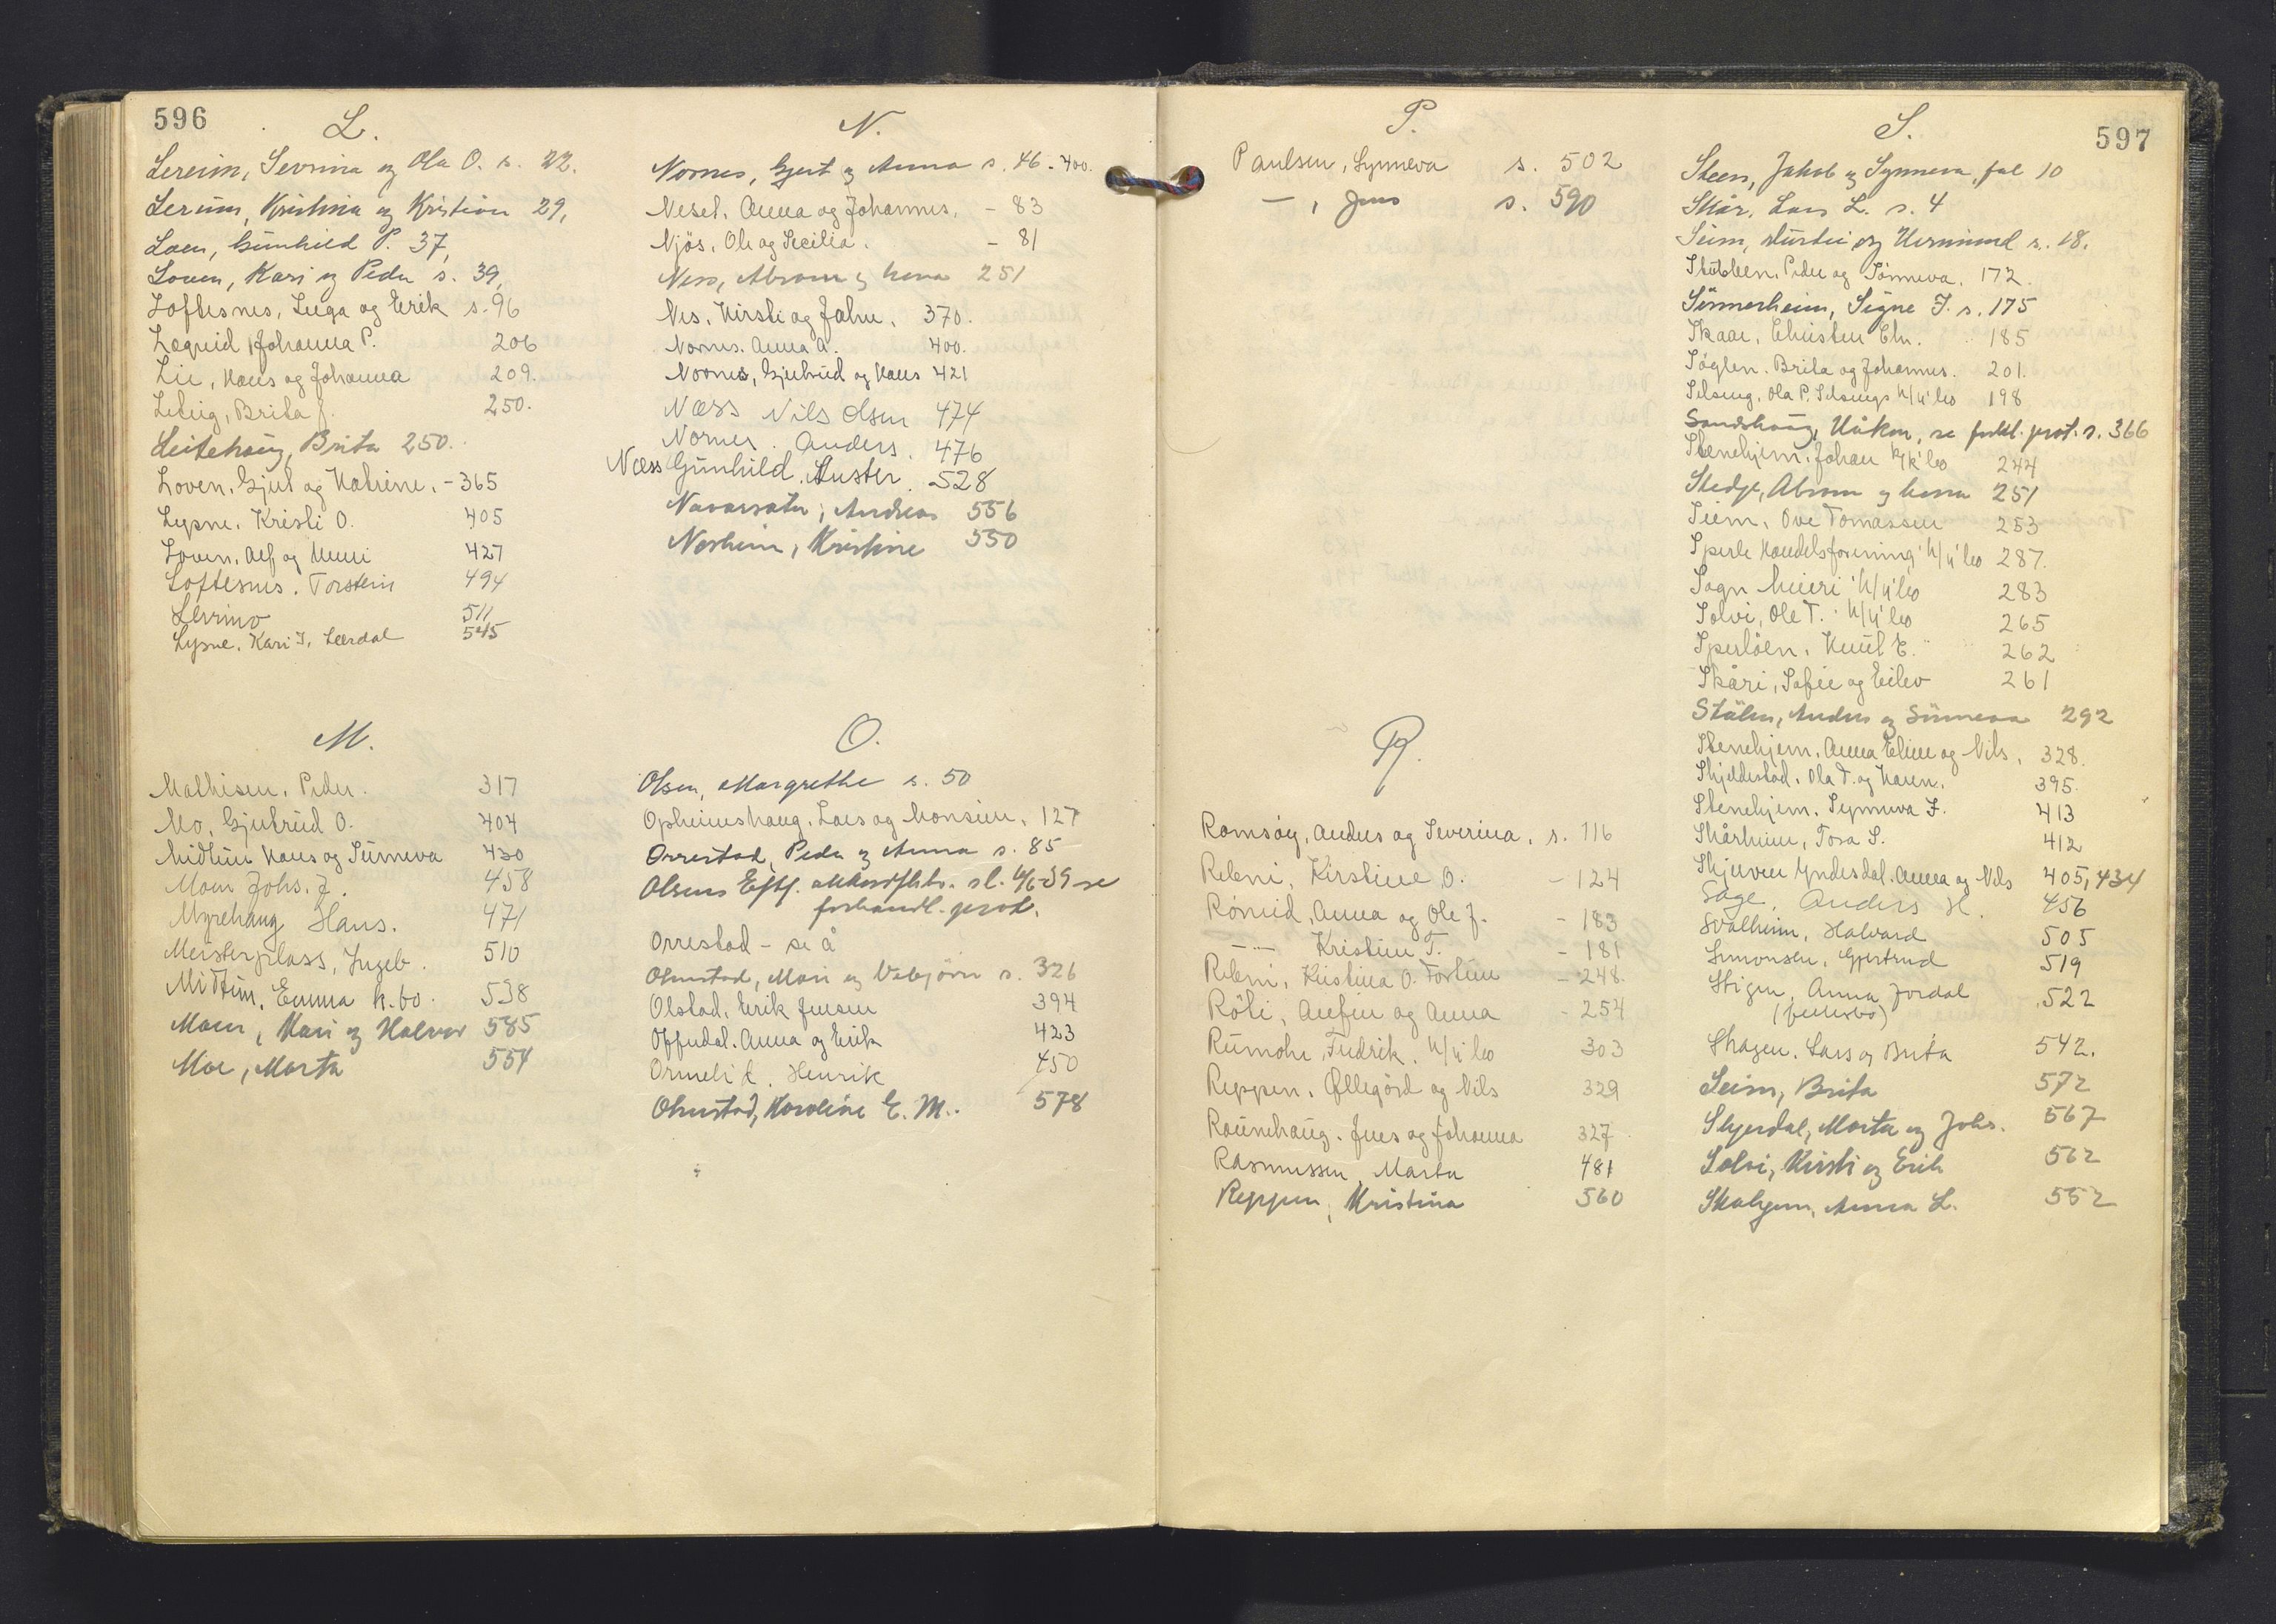 596
L.
Lereim, Sevrina og Ola O. s. 22.
Lerum, Kristina og Kristian 29,
Loen, Gunhild P. 37,
Loven, Kari og Peder s. 39,
Loftesnes, Inga og Erik s. 96
Lægreid, Johanna P. 206
Lie, Hans og Johanna 209.
Brita J. 250.
Leitehaug, Brita 250.
Loven, Gjert og Katrine, - 365
Lysne, Kristi O. 405
Loven, Alf og 427
Loftesnes, Torstein 494
511
Lysne, Kari J. Lærdal 545
M.
Mathisen, Peder. 317
Mo, Gjertrud O. 404
Midtun Hans og Sünneva 430
Moen Johs. J. 458
Myrehaug Hans. 471
Meisterplass, Ingeb. 510
Midtun, Emma k.bo. 538
Moen, Kari og Halvor 585
Moe, Marta 554
N.
Nornes, Gjert og Anna s. 46 - 400.
Nesel, Anna og Johannes, - 83
Njøs, Ole og Secilia. - 81
Ness, Abram og 251
Nes, Kirsti og John, 370.
Nornes, Anna A. 400.
Nornes, Gjertrud og Hans 421
Næss Nils Olsen 474
Nornes. Anders. 476
Næss Gunhild, Luster. 528
Navarsete, Andreas 556
Norheim, Kristine 550
O.
Olsen, Margrethe s. 50
Opheimshaug, Lars og Monsine, 127
Orrestad, Peder og Anna s. 85
Olsens Eftf. sl. 4/6-39 se
forhandl. prot.
Orrestad - se å
Olmstad, Mari og Vebjørn s. 326
Olstad, Erik Jensen 394
Offerdal, Anna og Erik 423
Ormelid, Henrik 450
Olmstad, Karoline E. M. 578
P.
Paulsen, Synneva s. 502
- , Jens s. 590
R.
Romsøy, Anders og Severina, s. 116
Rebni, Kirstine O. - 124
Römeid, Anna og Ole J. - 183
- - Kristine T. - 181
Rebni, Kristina O. Fortun - 248.
Röti, Anfin og Anna - 254
Rumohr, Fredrik. 303
Reppen, Øllegörd og Nils 329
Raunehaug, Jens og Johanna 327
Rasmussen, Marta 481
Reppen, Kristina 560
597
S.
Steen, Jakob og Synneva, fol 10
Skår, Lars L. s. 4
Seim, Sturlei og Hermund s. 18.
Stubben, Peder og Sünneva, 172.
Sønnerheim, Signe J. s. 175
Skaar, Christen Chr. 185
Søglen, Brita og Johannes. 201.
Selseng, Ola P. Selsengs bo 198
Sandshaug, Håkon, se forhl. prot. s. 366
Stenehjem, Johan bo 244
Stedje, Abram og 251
Seim, Ove Tomassen 253
Sperle Handelsforening bo 287.
Sogn Meieri bo 283
Solvi, Ole T. bo 265
Sperlöen, Knut E. 262
Skåri, Sofie og Eilev 261
Stölen, Anders og Sünneva 292
Stenehjem, Anna Eline og Nils, 328.
Skjeldestad, Ola T. og Karen, 395.
Stenehjem, Synneva J. 413
Skårheim, Tora S. 412
Skjerven Yndesdal, Anna og Nils 405, 434
Søge, Anders H. 456
Svalheim, Halvard 505
Simonsen, Gjertrud 519
Stigen, Anna Jordal 522
(fellesbo)
Skagen, Lars og Brita 542.
Seim, Brita 572
Skjerdal, Marta og Johs. 567
Solvi, Kirsti og Erik 562
Anna L. 552